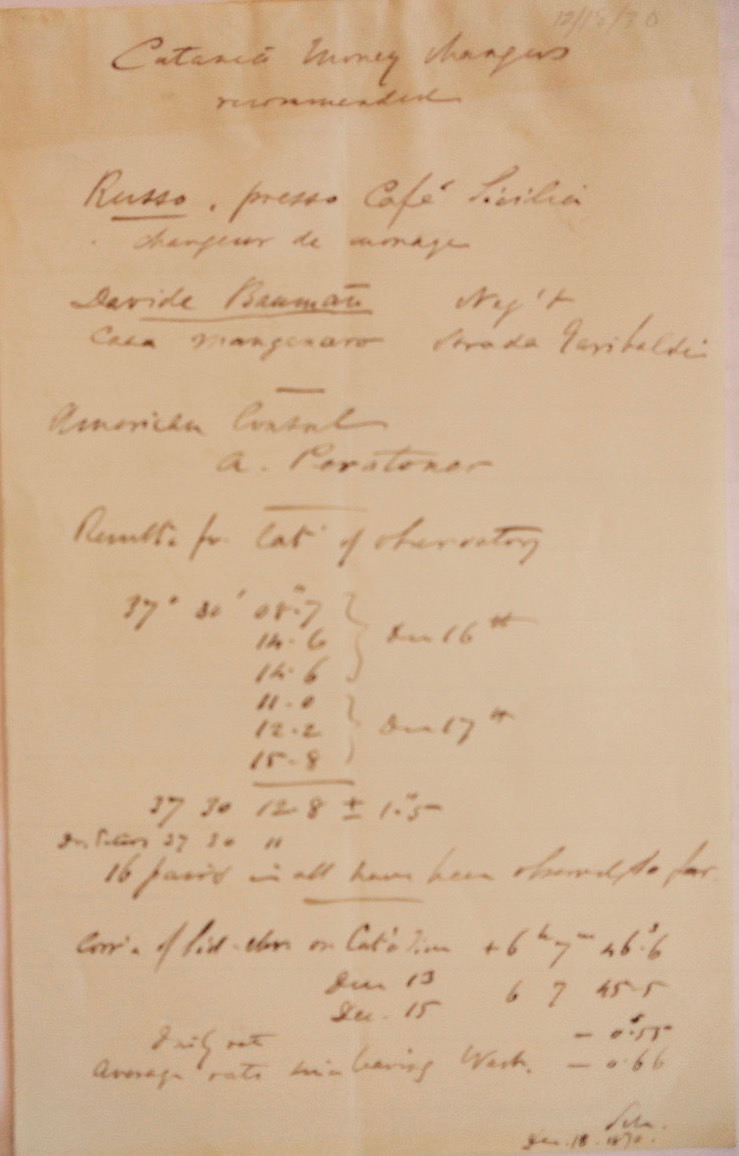 12/18/70
Catania Money changers
recommended
Russo, presso Café Sicilia
changeur de monage
Davide Baumann Neg't
Casa Manganaro Strada Garibaldi
American Consul
A. Peratoner
Results for Lat of observatory
37° 30' 08".7 } Dec 16th
14.6
14.6
11.0
12.2 } Dec 17th
15.8
37 30 12.8 ± 1".5
37 30 11
16 pairs in all have been observed so far.
Corr'n of Sid. chr. on Cat'a Time +6h 7m 46s.6
Dec 13
Dec. 15 6 7 45.5
Daily rate - 0s.55
Average rate since leaving Wash. - 0.66
Dec. 18. 1870.